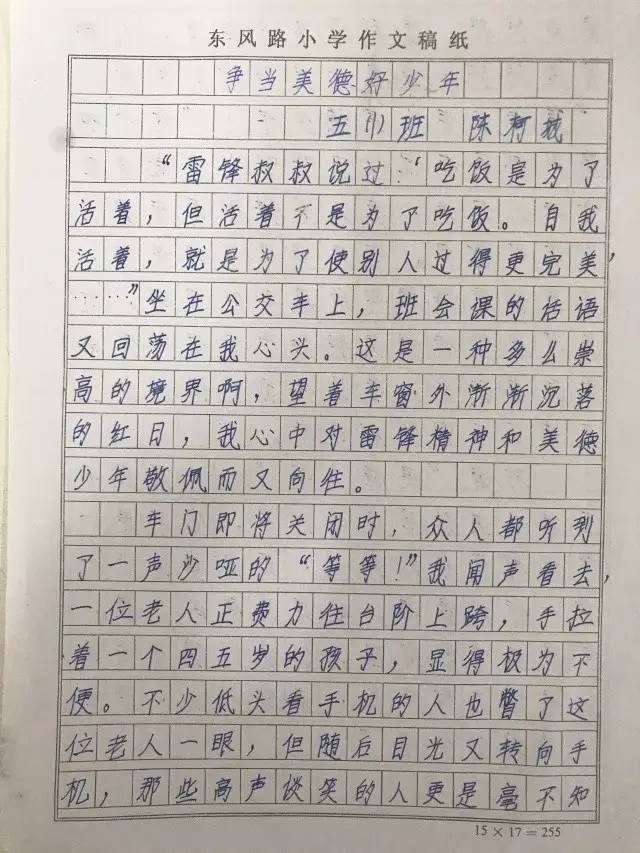 东风路小学作文稿纸
争当美德好少年
五(1)班 陈柯
“雷锋叔叔说过:‘吃饭是为了
活着,但活着不是为了吃饭。自我
活着,就是为了使别人过得更完美,
……”坐在公交车上,班会课的话语
又回荡在我心头。这是一种多么崇
高的境界啊,望着车窗外渐渐沉落
的红日,我心中对雷锋精神和美德
少年敬佩而又向往。
车门即将关闭时,众人都听到
了一声沙哑的“等等!”我闻声看去,
一位老人正费力往台阶上跨,手拉
着一个四五岁的孩子,显得极为不
便。不少低头看手机的人也瞥了这
位老人一眼,但随后目光又转向手
机,那些高声谈笑的人更是毫不知
15×17=255